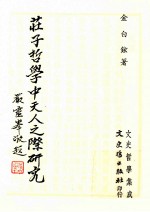 金白鉉著
莊子哲學中天人之際研究
嚴靈峯敬題
文史哲學集成
文史哲出版社印行